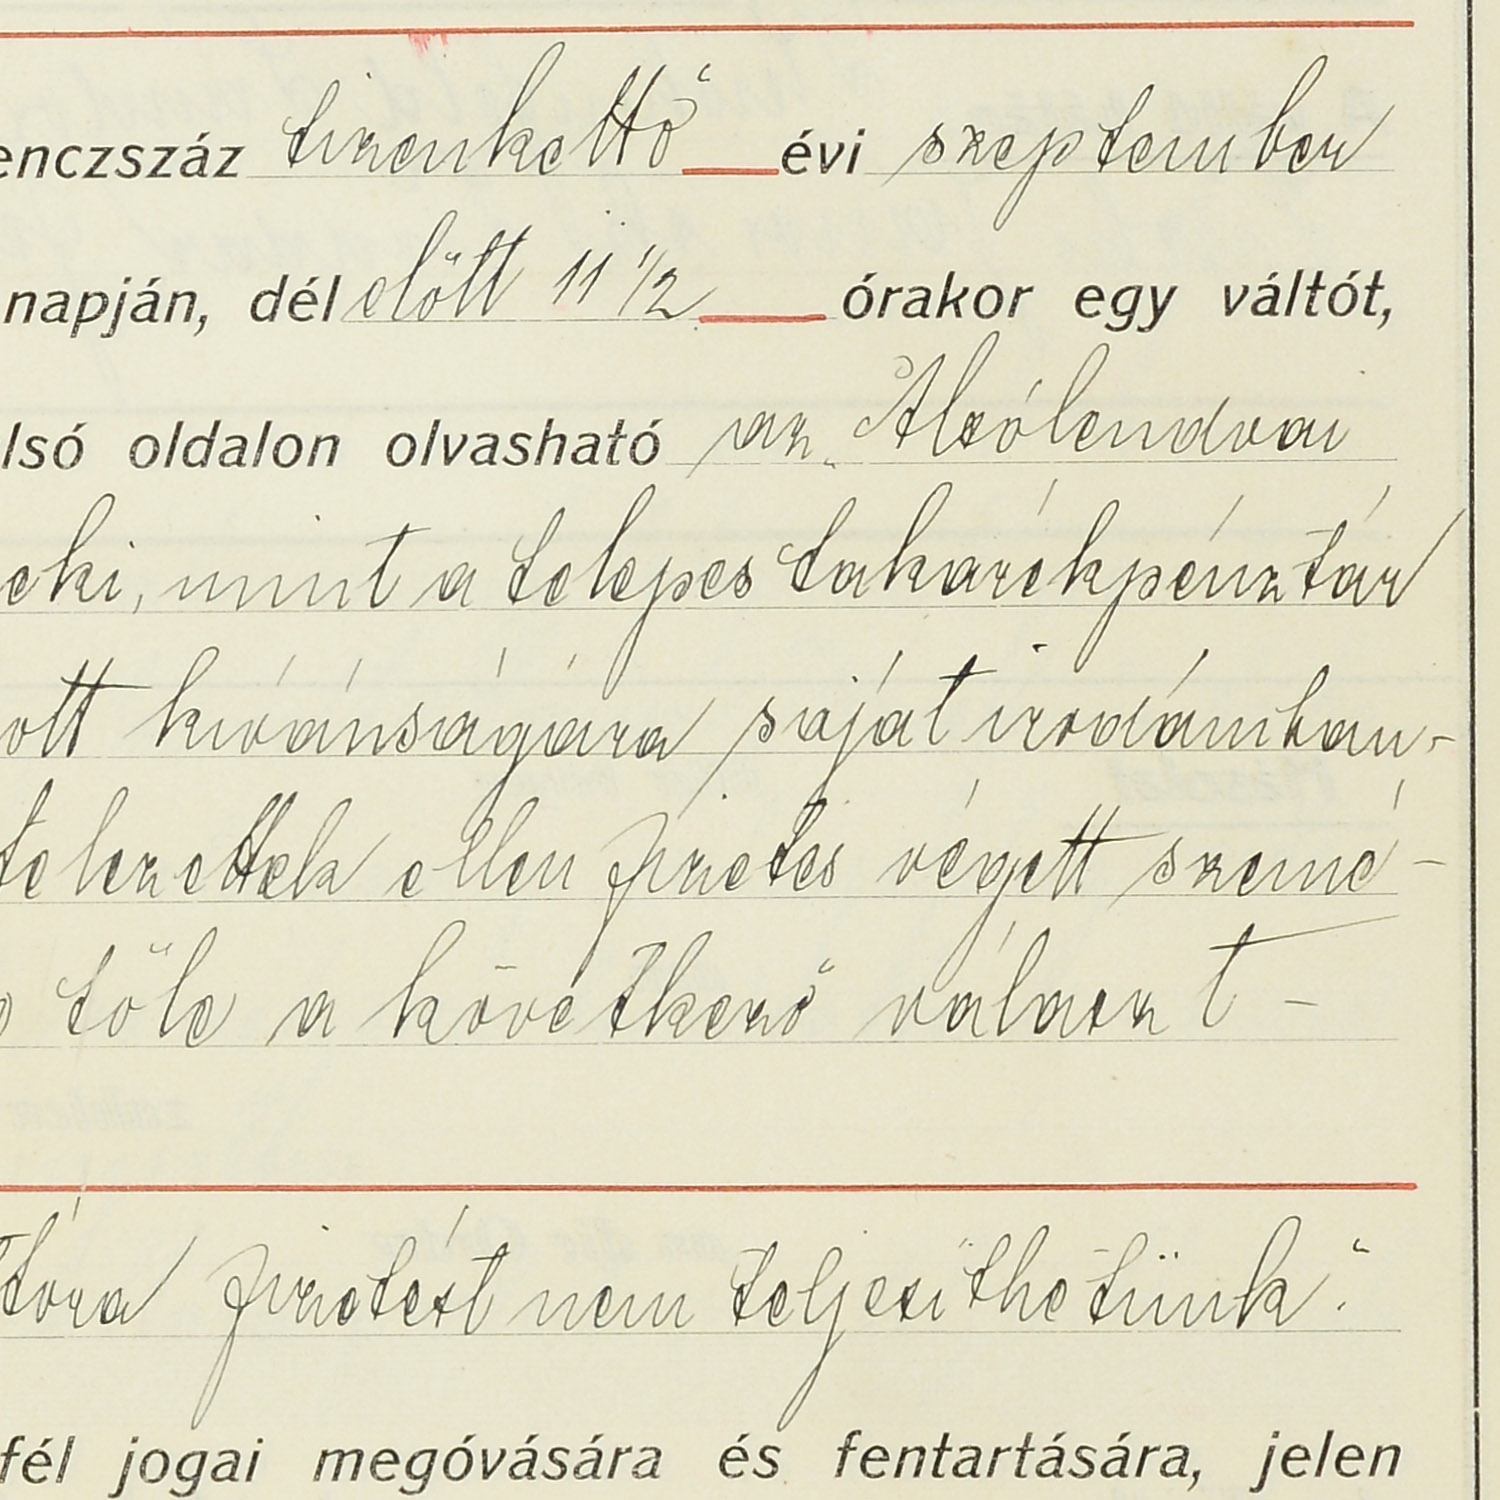 enczszáz tizenkettő évi szeptember
napján, délelőtt 11 1/2 órakor egy váltót,
lső oldalon olvasható az "Alsólendvai
eki, mint a telepes takarékpénztár
ott kivánságára saját irodámban-
telezettek ellen fizetés végett szemé-
tőle a következő választ -
tóra fizetést nem teljesíthetünk."
fél jogai megóvására és fentartására, jelen